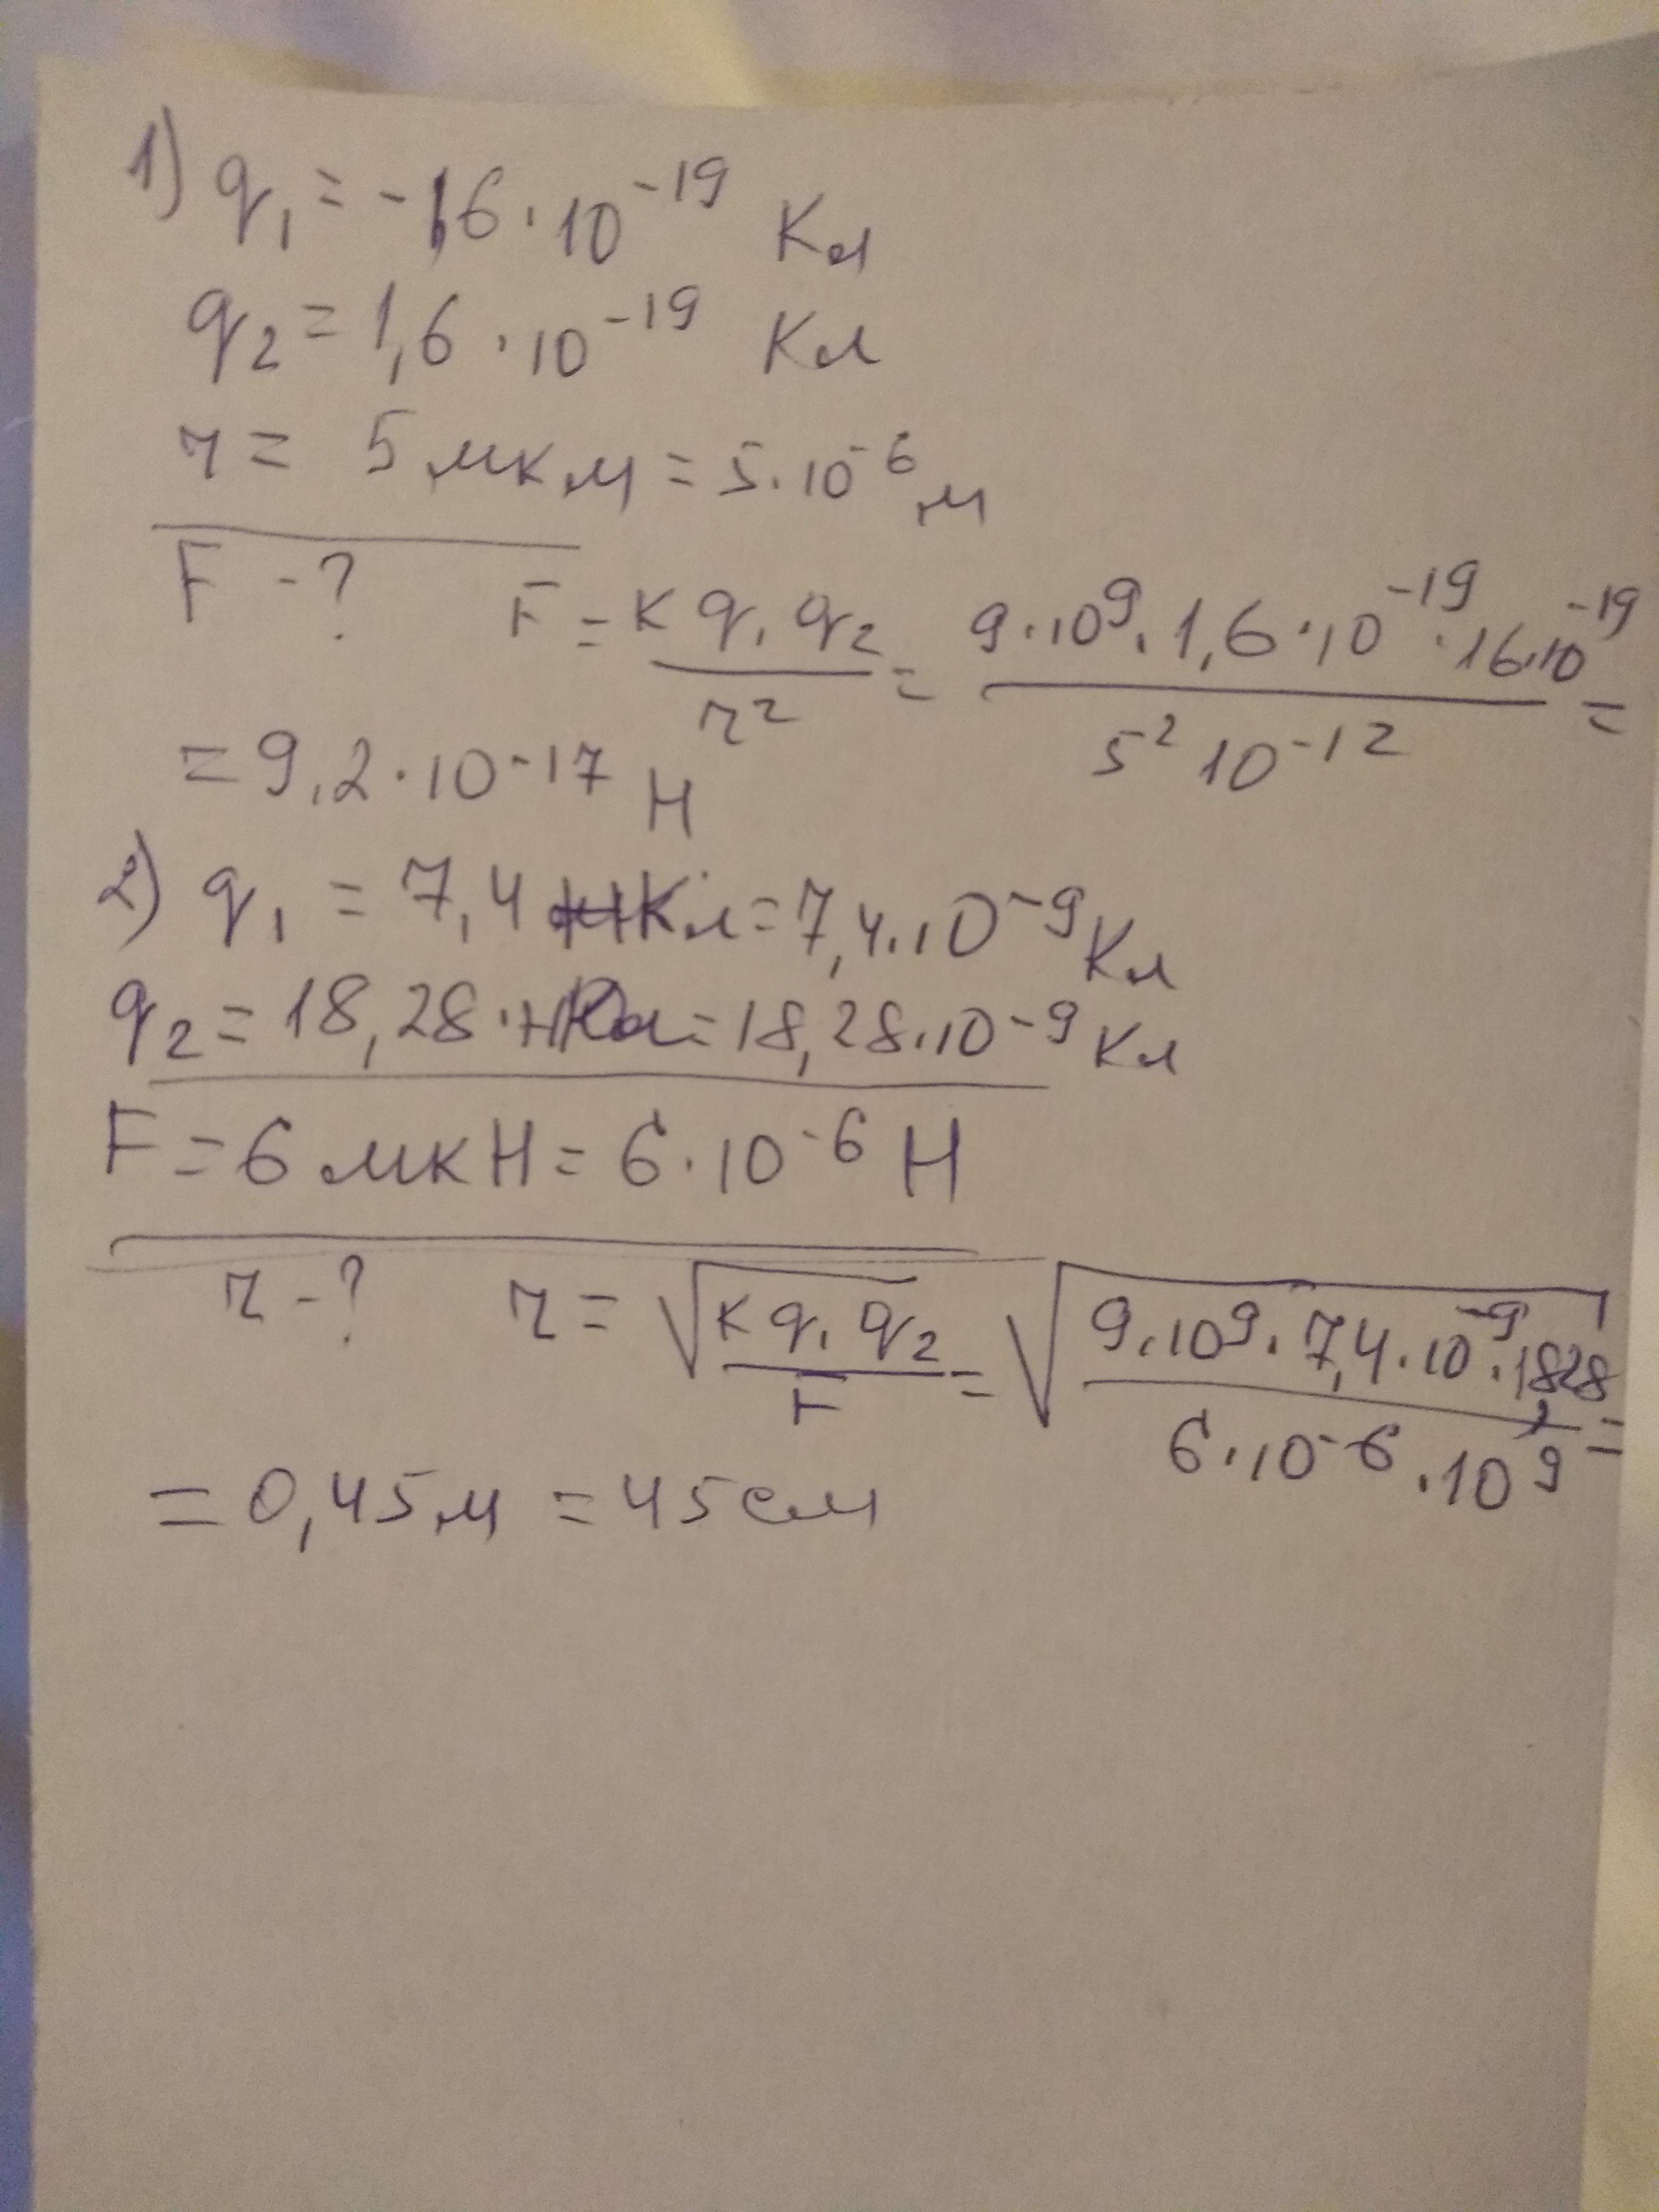 1) q₁ = -1,6 · 10⁻¹⁹ Кл
q₂ = 1,6 · 10⁻¹⁹ Кл
r = 5 мкм = 5 · 10⁻⁶ м
F - ? F = k q₁ q₂ / r² = 9 · 10⁹ · 1,6 · 10⁻¹⁹ · 1,6 · 10⁻¹⁹ / 5² 10⁻¹² =
= 9,2 · 10⁻¹⁷ Н
2) q₁ = 7,4 нКл = 7,4 · 10⁻⁹ Кл
q₂ = 18,28 · нКл = 18,28 · 10⁻⁹ Кл
F = 6 мкН = 6 · 10⁻⁶ Н
r - ? r = √(k q₁ q₂ / F) = √(9 · 10⁹ · 7,4 · 10⁻⁹ · 18,28 / 6 · 10⁻⁶ · 10⁹) =
= 0,45 м = 45 см